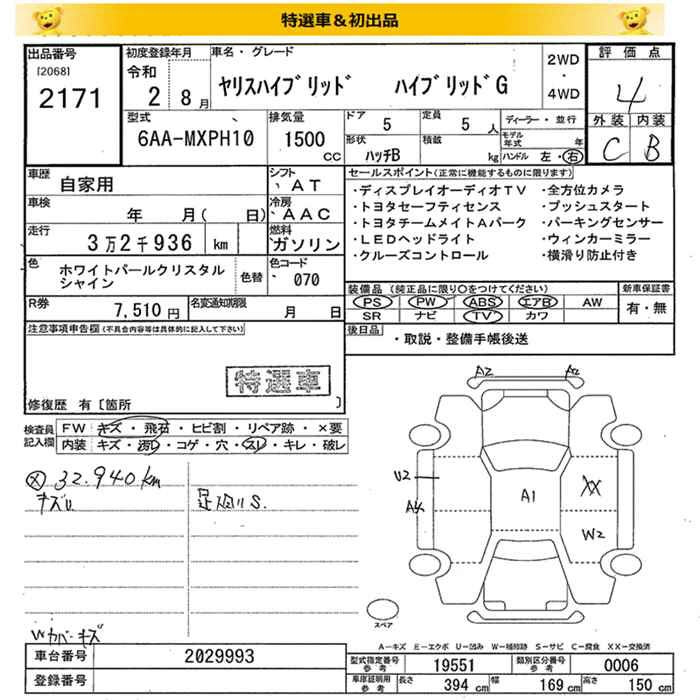 特選車&初出品
出品番号
[2068]
2171
初度登録年月
令和
2 8月
車名・グレード
ヤリスハイブリッド ハイブリッドG
2WD
・
4WD
評価点
4
外装 内装
C B
型式
6AA-MXPH10
排気量
1500
cc
ドア
5
定員
5 人
形状
ハッチB
積載
kg
ディーラー・並行
モデル年式 年
ハンドル 左・右
車歴
自家用
シフト
、AT
車検
年 月( 日)
冷房
、AAC
走行
3万2千936 km
燃料
ガソリン
色
ホワイトパールクリスタル
シャイン
色替
色コード
、070
R券
7,510円
名変通知期限
月 日
セールスポイント(正常に機能するものに限ります)
・ディスプレイオーディオTV ・全方位カメラ
・トヨタセーフティセンス ・プッシュスタート
・トヨタチームメイトAパーク ・パーキングセンサー
・LEDヘッドライト ・ウィンカーミラー
・クルーズコントロール ・横滑り防止付き
装備品(純正品に限り○をつけてください)
PS PW ABS エアB AW
SR ナビ TV カワ
新車保証書
有・無
後日品
・取説・整備手帳後送
注意事項申告欄(不具合内容等は具体的に記入して下さい)
特選車
修復歴 有〔箇所 〕
検査員
記入欄
FW キズ・飛石・ヒビ割・リペア跡・×要
内装 キズ・汚れ・コゲ・穴・スレ・キレ・破レ
32.940km
キズU
S.
Wカバーキズ
A2
U2
A1
XX
W2
スペア
A-キズ E-エクボ U-凹み W-補修跡 S-サビ C-腐食 XX-交換済
車台番号
2029993
登録番号
型式指定番号
参考
19551
類別区分番号
参考
0006
車庫証明用
参考
長さ 394 cm
幅 169 cm
高さ 150 cm